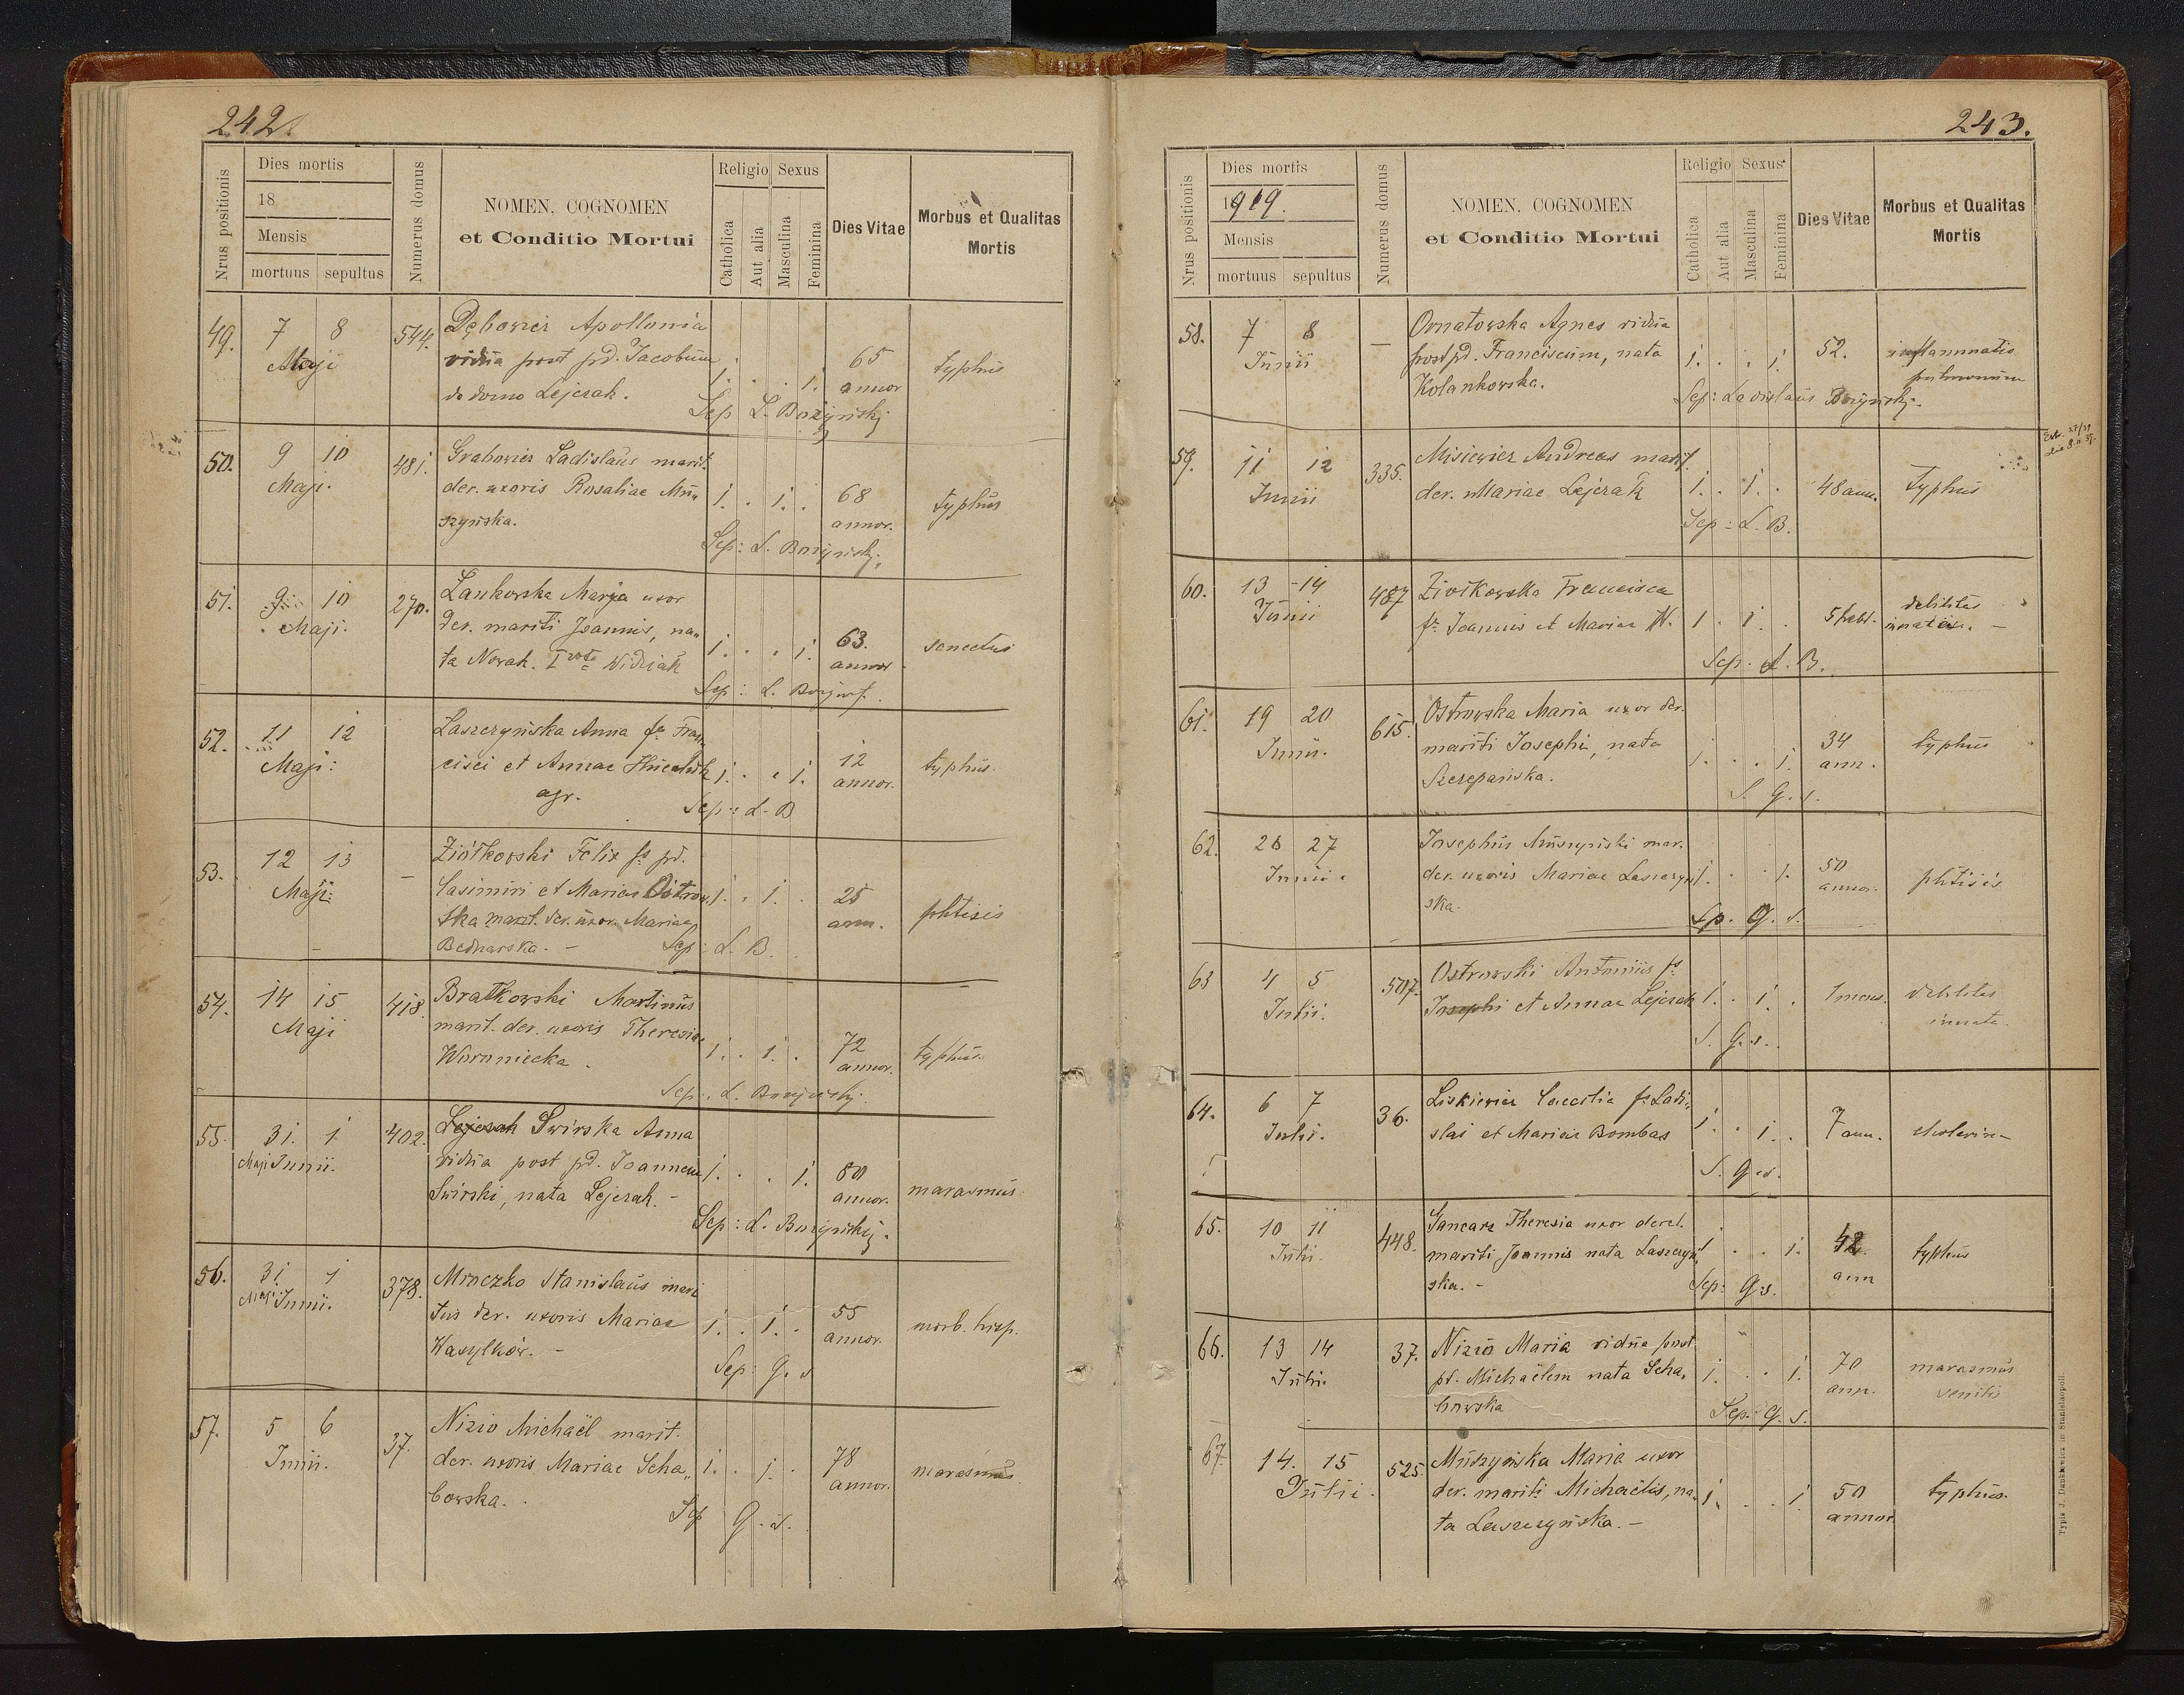 242.
Nrus positionis
Dies mortis
18
Mensis
mortuus sepultus
Numerus domus
NOMEN, COGNOMEN
et Conditio Mortui
Religio Sexus
Catholica
Aut alia
Masculina
Feminina
Dies Vitae
Morbus et Qualitas
Mortis
49. 7 8 544. Dębowicz Apollonia
Maji vidua post pd. Jacobum 65 typhus
de domo Lejczak. 1. . . 1. annor
Sep L. Bożyński
50. 9 10 481. Grabowicz Ladislaus marit.
Maji. der. uxoris Rosaliae Mu„ 1. . 1. . 68 typhus
szyńska. annor.
Sep: L. Bożyński.
51. 9 10 270. Lankowska Marya uxor
Maji. der. mariti Joannis, na„ 1. . . 1. 63. senectus
ta Nowak. I voto Widziak annor.
Sep: L.
52. 11 12 Laszczyńska Anna fa Fran„
Maji: cisci et Annae 1. . . 1. 12 typhus.
agr. annor.
Sep: L. B
53. 12 13 – Ziółkowski Felix fs pd.
Maji: Casimiri et Mariae Ostrow„ 1. . 1. . 25 phtisis
ska marit. der. uxor. Mariae ann.
Bednarska. – Sep: L. B.
54. 14 15 418. Bratkowski Martinus
Maji marit. der. uxoris Theresiae 1. . 1. . 72 typhus.
Woroniecka. annor.
Sep: L. Bożyński.
55. 31. 1 402. Lejczak Swirska Anna
Maji Junii. vidua post pd. Joannem 1. . . 1. 80 marasmus
Swirski, nata Lejczak. – annor.
Sep: L. Bożyński.
56. 31 1 378. Mroczko Stanislaus mari
Maji Junii. tus der. uxoris Mariae 1. . 1. . 55 morb. hisp.
Wasylków. – annor.
Sep: G. s
57. 5 6 37. Nizio Michaël marit.
Junii. der. uxoris Mariae Scha„ 1. . 1. . 78 marasmus
bowska. annor.
Sep G. s.
243.
Nrus positionis
Dies mortis
1919.
Mensis
mortuus sepultus
Numerus domus
NOMEN, COGNOMEN
et Conditio Mortui
Religio Sexus
Catholica
Aut alia
Masculina
Feminina
Dies Vitae
Morbus et Qualitas
Mortis
58. 7 8 – Ornatowska Agnes vidua
Junii post pd. Franciscum, nata 1. . . 1. 52. inflammatio
Kolankowska. pulmonum
Sep: Ladislaus Bożyński.
59. 11 12 335. Misiewicz Andreas marit.
Junii der. Mariae Lejczak 1. . 1. . 48 ann. typhus
Sep: L. B.
60. 13 14 487 Ziołkowska Francisca
Junii fa Joannis et Mariae W. 1 . 1 . 5 hebd. debilitas
innata. –
Sep. L. B.
61. 19 20 615. Ostrowska Maria uxor der.
Junii. mariti Josephi, nata 1. . . 1. 34 typhus
Szczepańska. ann.
S. G. s.
62. 26 27 Josephus Muszyński mar.
Junii. der. uxoris Mariae Laszczyń 1. . . 1. 50 phtisis
ska. annor.
Sp. G. s.
63 4 5 507. Ostrowski Antonius fs
Julii. Josephi et Annae Lejczak 1. . 1. . 1 mens. debilitas
innata.
S. G. s.
64. 6 7 36. Liskiewicz Caecilia fa Ladi„
Julii. slai et Mariae Bombas 1. . 1. . 7 ann.
S. G. s.
65. 10 11 448. Gancarz Theresia uxor derel.
Julii. mariti Joannis nata Laszczyń . . 1. 42 typhus
ska. – ann
Sep: G. s.
66. 13 14 37. Nizio Maria vidua post
Julii. pd. Michaëlem nata Scha„ 1. . . 1. 70 marasmus
bowska ann. senilis
Sep. G. s.
67. 14. 15 525. Muszyńska Maria uxor
Julii. der. mariti Michaëlis, na„ 1. . . 1. 50 typhus.
ta Laszczyńska. – annor
Typis J. Dankiewicz in Stanislaopoli.